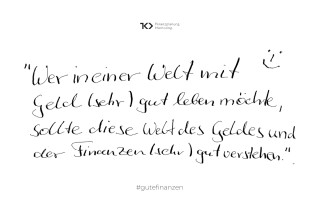 "Wer in einer Welt mit
Geld (sehr) gut leben möchte,
sollte diese Welt des Geldes und
der Finanzen (sehr) gut verstehen."
#gutefinanzen